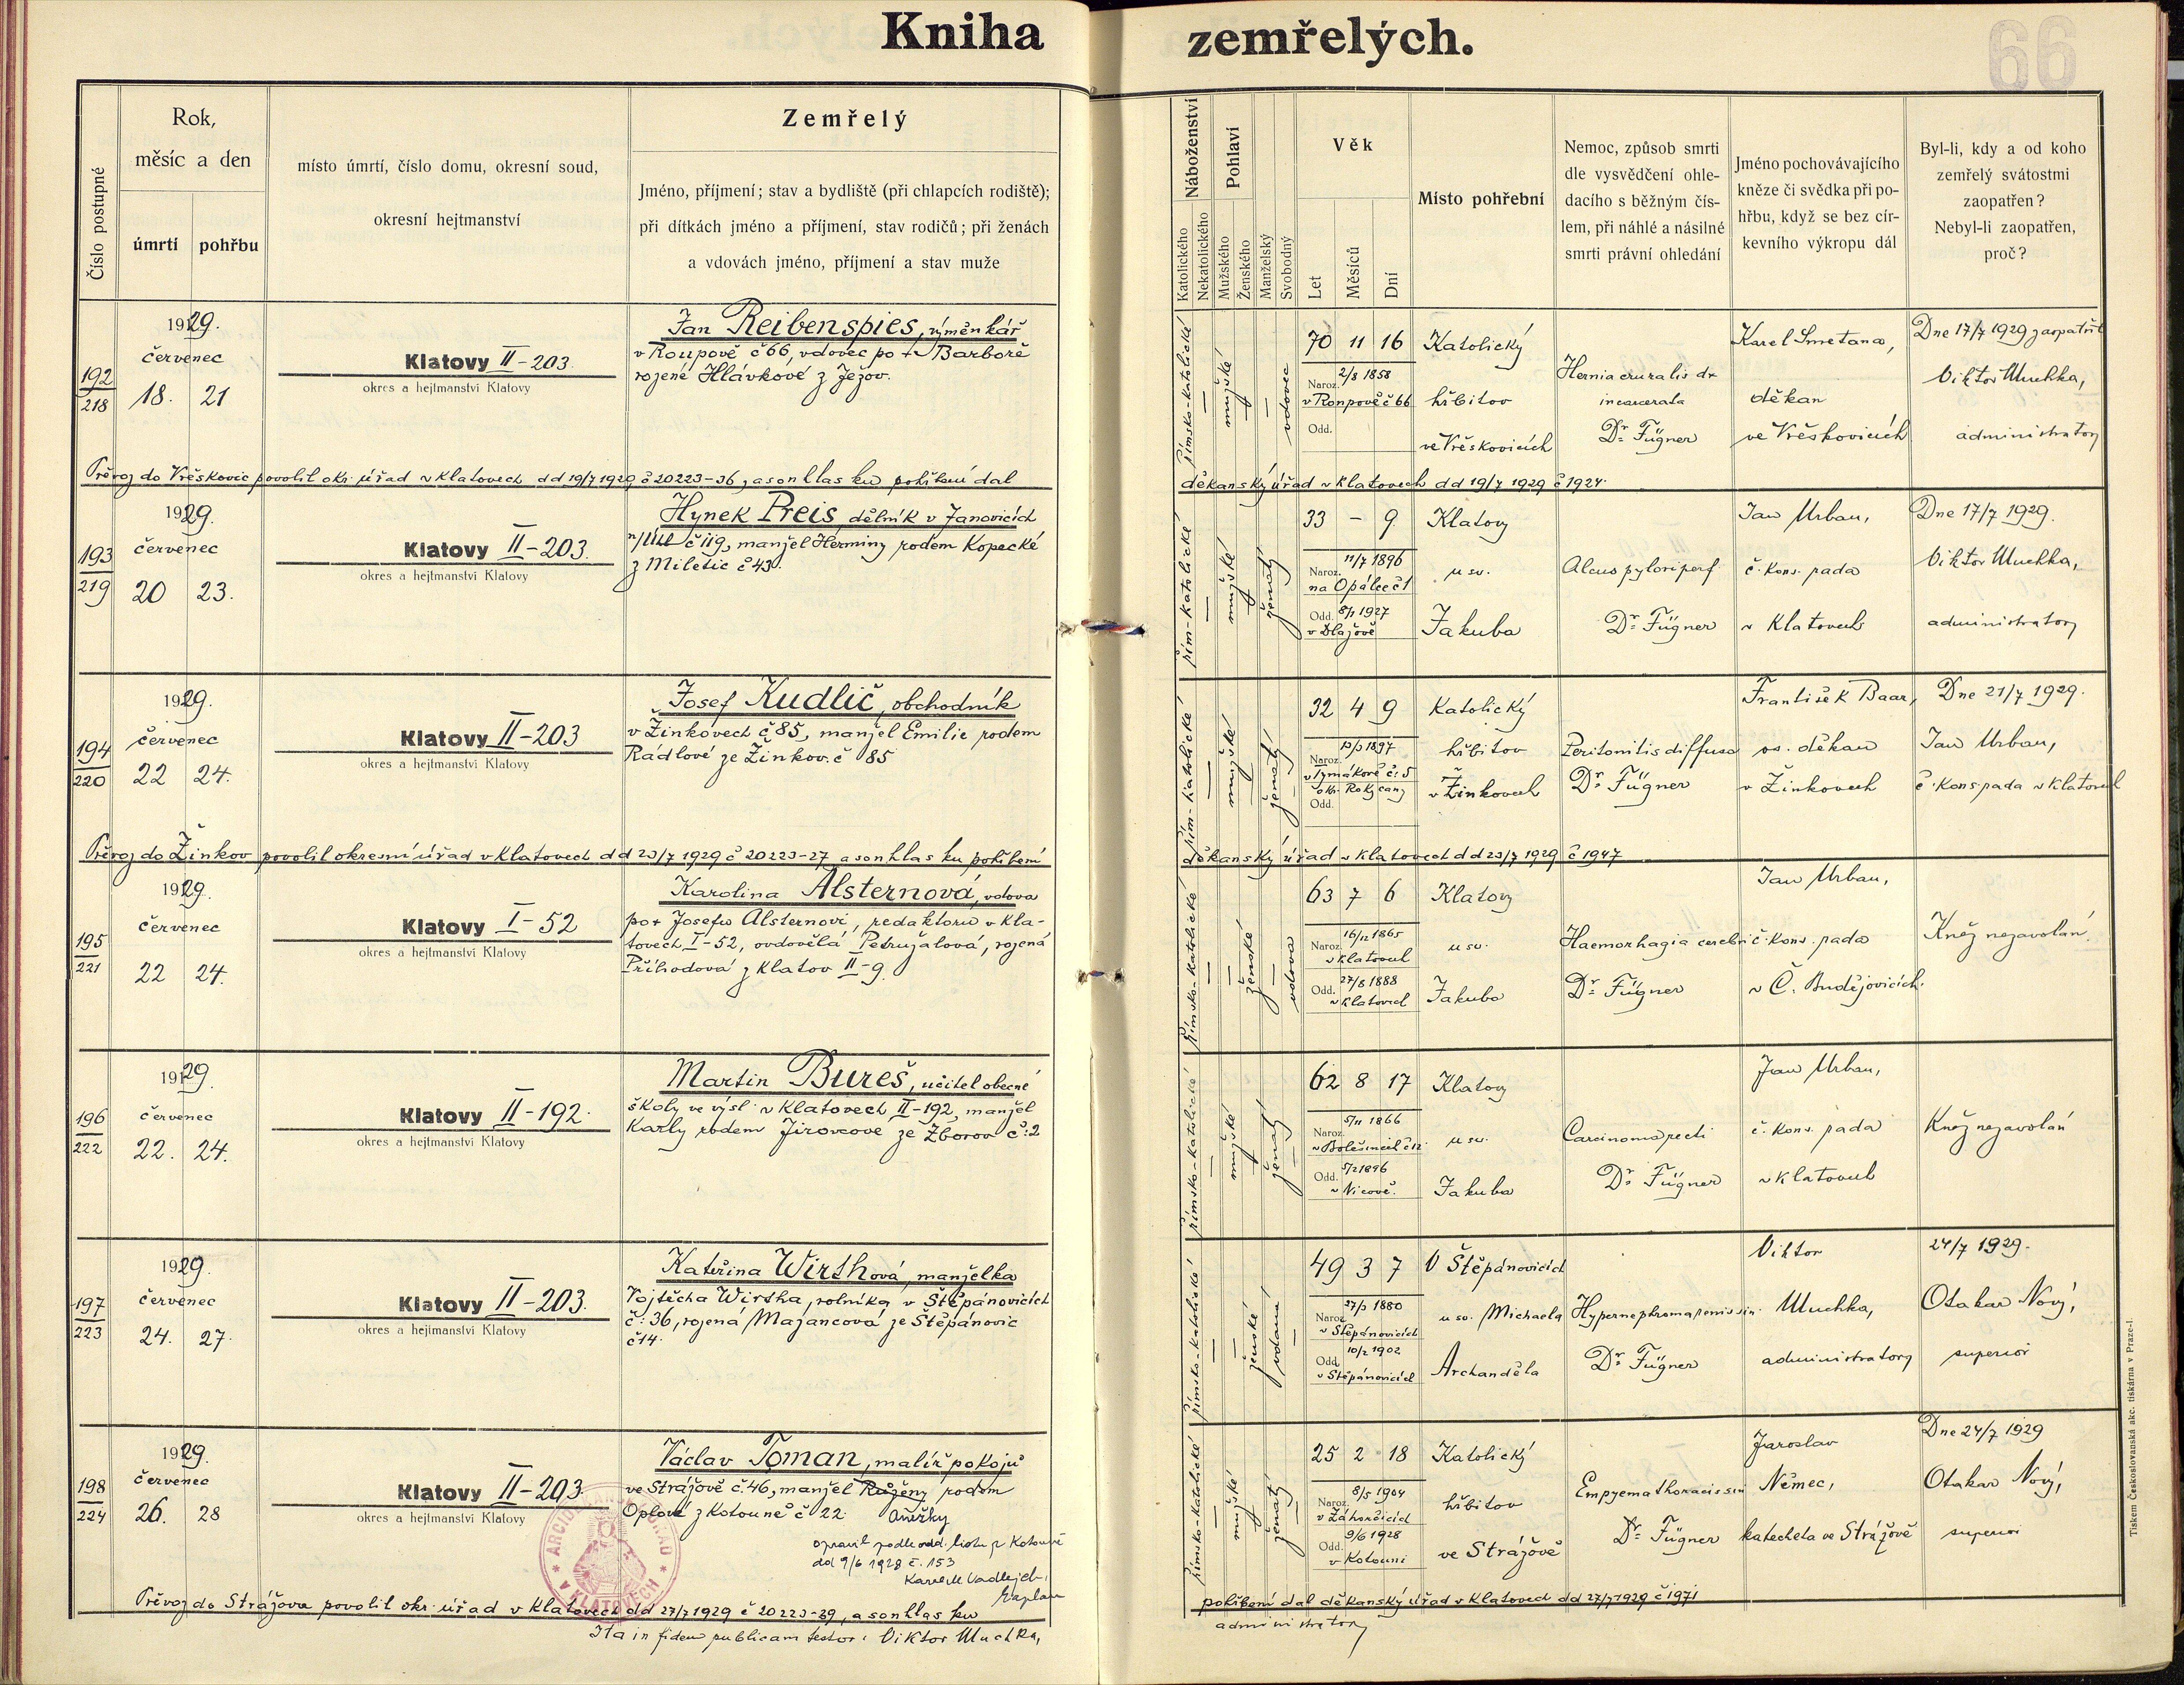 Kniha zemřelých.
66
Číslo postupné
Rok,
měsíc a den
úmrtí
pohřbu
místo úmrtí, číslo domu, okresní soud,
okresní hejtmanství
Zemřelý
Jméno, příjmení; stav a bydliště (při chlapcích rodiště);
při dítkách jméno a příjmení, stav rodičů; při ženách
a vdovách jméno, příjmení a stav muže
Náboženství
Katolického
Nekatolického
Pohlaví
Mužského
Ženského
Manželský
Svobodný
Věk
Let
Měsíců
Dní
Místo pohřební
Nemoc, způsob smrti
dle vysvědčení ohle-
dacího s běžným čís-
lem, při náhlé a násilné
smrti právní ohledání
Jméno pochovávajícího
kněze či svědka při po-
hřbu, když se bez cír-
kevního výkropu dál
Byl-li, kdy a od koho
zemřelý svátostmi
zaopatřen?
Nebyl-li zaopatřen,
proč?
192
218
1929.
červenec
18. 21
Klatovy II-203.
okres a hejtmanství Klatovy
Jan Reibenspies, výměnkář
v Roupově č 66, vdovec po + Barboře
rojené Hlávkové z Ježov.
římsko-katolické
mužské
vdovec
70 11 16
Naroz. 2/8 1858
v Roupově č 66
Odd.
Katolický
hřbitov
ve Vřeskovicích
Hernia cruralis dx
incarcerata
Dr. Fügner
Karel Smetana,
děkan
ve Vřeskovicích
Dne 17/7 1929 zaopatřil
Viktor Muchka,
administrator
Převoz do Vřeskovic povolil okr. úřad v Klatovech dd 19/7 1929 č 20223-36, a souhlas ku pohřbení dal
děkanský úřad v Klatovech dd 19/7 1929 č 1924.
193
219
1929.
červenec
20 23.
Klatovy II-203.
okres a hejtmanství Klatovy
Hynek Preis, dělník v Janovicích
n/Úhl č 119, manžel Herminy rodem Kopecké
z Miletic č 43.
řím-katolické
mužské
ženatý
33 - 9
Naroz. 11/7 1896
na Opálce č 1
Odd. 8/1 1927
v Dlažově
Klatovy
u sv.
Jakuba
Ulcus pylori perf
Dr. Fügner
Jan Urban,
č. kons. rada
v Klatovech
Dne 17/7 1929.
Viktor Muchka,
administrator
194
220
1929.
červenec
22 24.
Klatovy II-203
okres a hejtmanství Klatovy
Josef Kudlič, obchodník
v Žinkovech č 85, manžel Emilie rodem
Rádlové ze Žinkov. č 85
řím-katolické
mužské
ženatý
32 4 9
Naroz. 13/3 1897
v Tymákově č: 5
okr. Rokycany
Odd.
Katolický
hřbitov
v Žinkovech
Peritonitis diffusa
Dr. Fügner
František Baar,
os. děkan
v Žinkovech
Dne 21/7 1929.
Jan Urban,
č. kons rada v Klatovech
Převoz do Žinkov povolil okresní úřad v Klatovech dd 23/7 1929 č 20223-27, a souhlas ku pohřbení
děkanský úřad v Klatovech dd 23/7 1929 č 1947
195
221
1929.
červenec
22 24.
Klatovy I-52
okres a hejtmanství Klatovy
Karolina Alsternová, vdova
po + Josefu Alsternovi, redaktoru v Kla-
tovech, I-52, ovdovělá Petružalová, rojená
Příhodová z Klatov II-9.
římsko-katolické
ženské
vdova
63 7 6
Naroz. 16/12 1865
v Klatovech
Odd. 27/8 1888
v Klatovech
Klatovy
u sv.
Jakuba
Haemorhagia cerebri
Dr. Fügner
Jan Urban,
č. kons. rada
v Č. Budějovicích.
Kněz nezavolán.
196
222
1929.
červenec
22. 24.
Klatovy II-192.
okres a hejtmanství Klatovy
Martin Bureš, učitel obecné
školy ve výsl. v Klatovech II-192, manžel
Karly rodem Jirovcové ze Zborov č:2
římsko-katolické
mužské
ženatý
62 8 17
Naroz. 5/11 1866
v Bolešinech č 12
Odd. 5/2 1896
v Nicově.
Klatovy
u sv.
Jakuba
Carcinoma recti
Dr. Fügner
Jan Urban,
č. kons. rada
v Klatovech
Kněz nezavolán
197
223
1929.
červenec
24. 27.
Klatovy II-203.
okres a hejtmanství Klatovy
Kateřina Wirthová, manželka
Vojtěcha Wirtha, rolníka v Štěpánovicích
č: 36, rojená Majancová ze Štěpánovic
č 14.
římsko-katolické
ženské
vdaná
49 3 7
Naroz. 27/3 1880
v Štěpánovicích
Odd. 10/2 1902
v Štěpánovicích
V Štěpánovicích
u sv. Michaela
Archanděla
Hypernephroma renis sin.
Dr. Fügner
Viktor
Muchka,
administrator
24/7 1929.
Otakar Nový,
superior
198
224
1929.
červenec
26. 28
Klatovy II-203
okres a hejtmanství Klatovy
Václav Toman, malíř pokojů
ve Strážově č. 46, manžel Růženy rodem
Oplové z Kotouně č 22. Anežky
opravil podle odd. listu z Kotouně
dd 9/6 1928 č. 153
Karel M. Vadlejch,
kaplan
římsko-katolické
mužské
ženatý
25 2 18
Naroz. 8/5 1904
v Záhorčicích
Odd. 9/6 1928
v Kotouni
Katolický
hřbitov
ve Strážově
Empyema thoracis sin
Dr. Fügner
Jaroslav
Němec,
katecheta ve Strážově
Dne 24/7 1929
Otakar Nový,
superior
Převoz do Strážova povolil okr. úřad v Klatovech dd 27/7 1929 č 20223-39, a souhlas ku
pohřbení dal děkanský úřad v Klatovech dd 27/7 1929 č 1971
Ita in fidem publicam testor: Viktor Muchka,
administrator
ARCIDĚKANSKÝ ÚŘAD V KLATOVECH
Tiskem Československá akc. tiskárna v Praze-I.